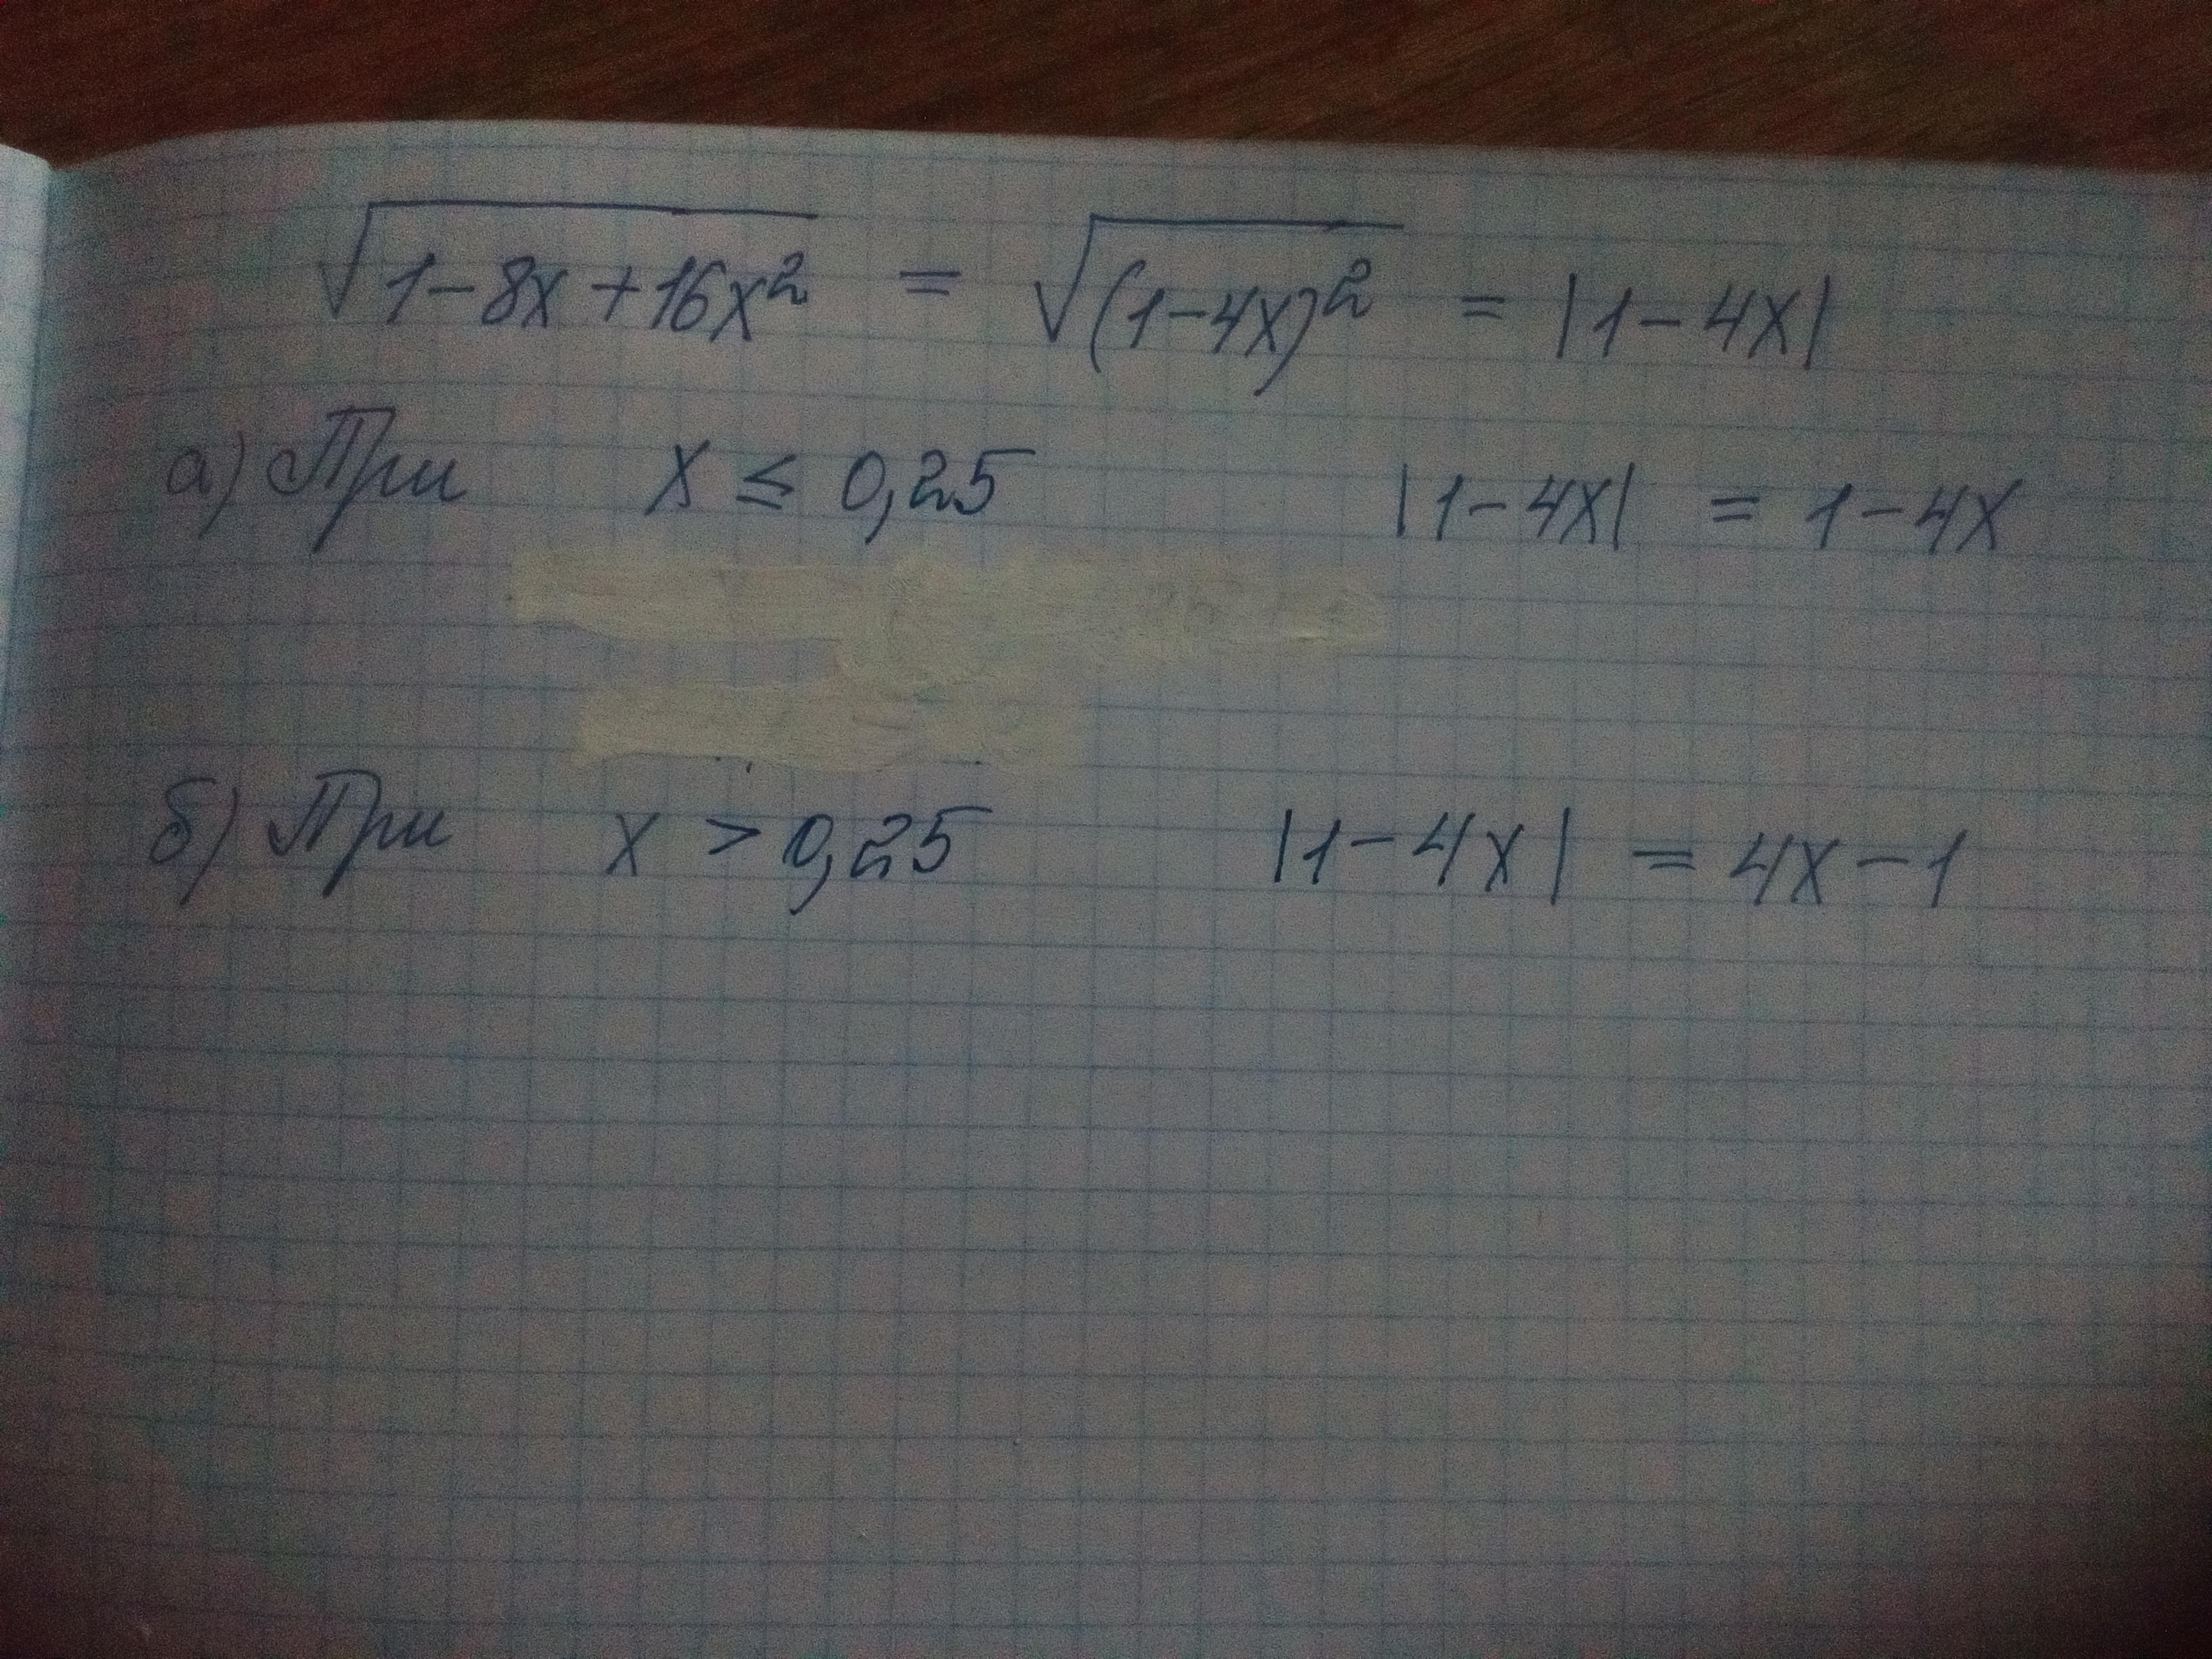 √1-8x+16x² = √(1-4x)² = |1-4x|
а) При x ≤ 0,25 |1-4x| = 1-4x
б) При x > 0,25 |1-4x| = 4x-1